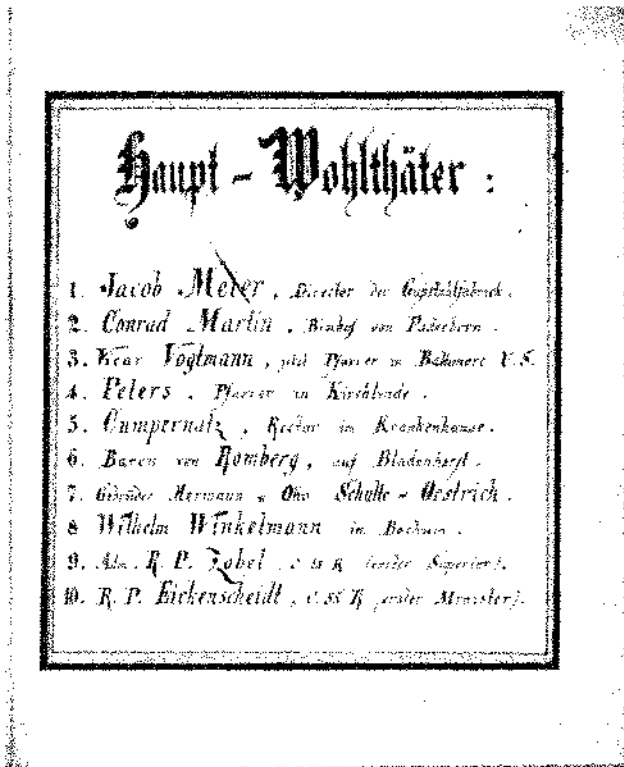 Haupt - Wohlthäter :
1. Jacob Meier, Director der Gußstahlfabrick.
2. Conrad Martin, Bischof von Paderborn.
3. Vicar Vogtmann, jetzt Pfarrer in
4. Peters, Pfarrer in Kirchlinde.
5. Cumpernatz, Rector im Krankenhause.
6. Baron von Romberg, auf Bladenhorst.
7. Gebrüder Hermann u Otto Schulte - Oestrich.
8 Wilhelm Winkelmann in Bochum.
9. R. P. Zobel, C ss R (erster Superior).
10. R. P. Eickenscheidt, C. SS R (erster Minister).